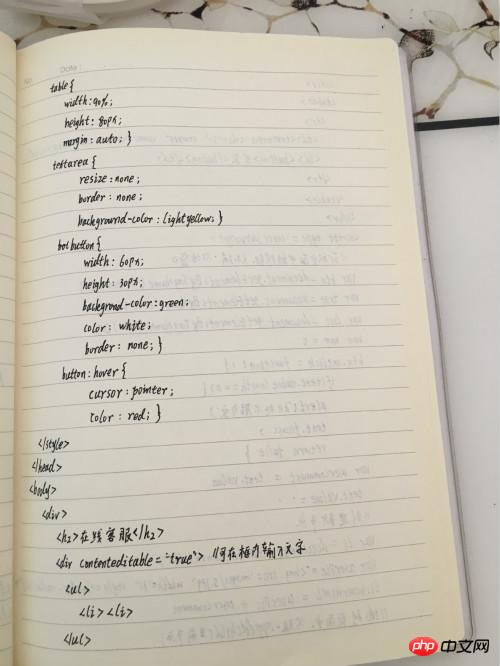 DATE
table{
width:90%;
height:80px;
margin:auto; }
textarea {
resize:none;
border:none;
background-color:lightyellow; }
button{
width:60px;
height:30px;
backgroud-color:green;
color:white;
border:none; }
button:hover {
cursor:pointer;
color:red; }
</style>
</head>
<body>
<div>
<h2>在线客服</h2>
<div contenteditable="true"> //可在框内输入文字
<ul>
<li><li>
</ul>
php中文网